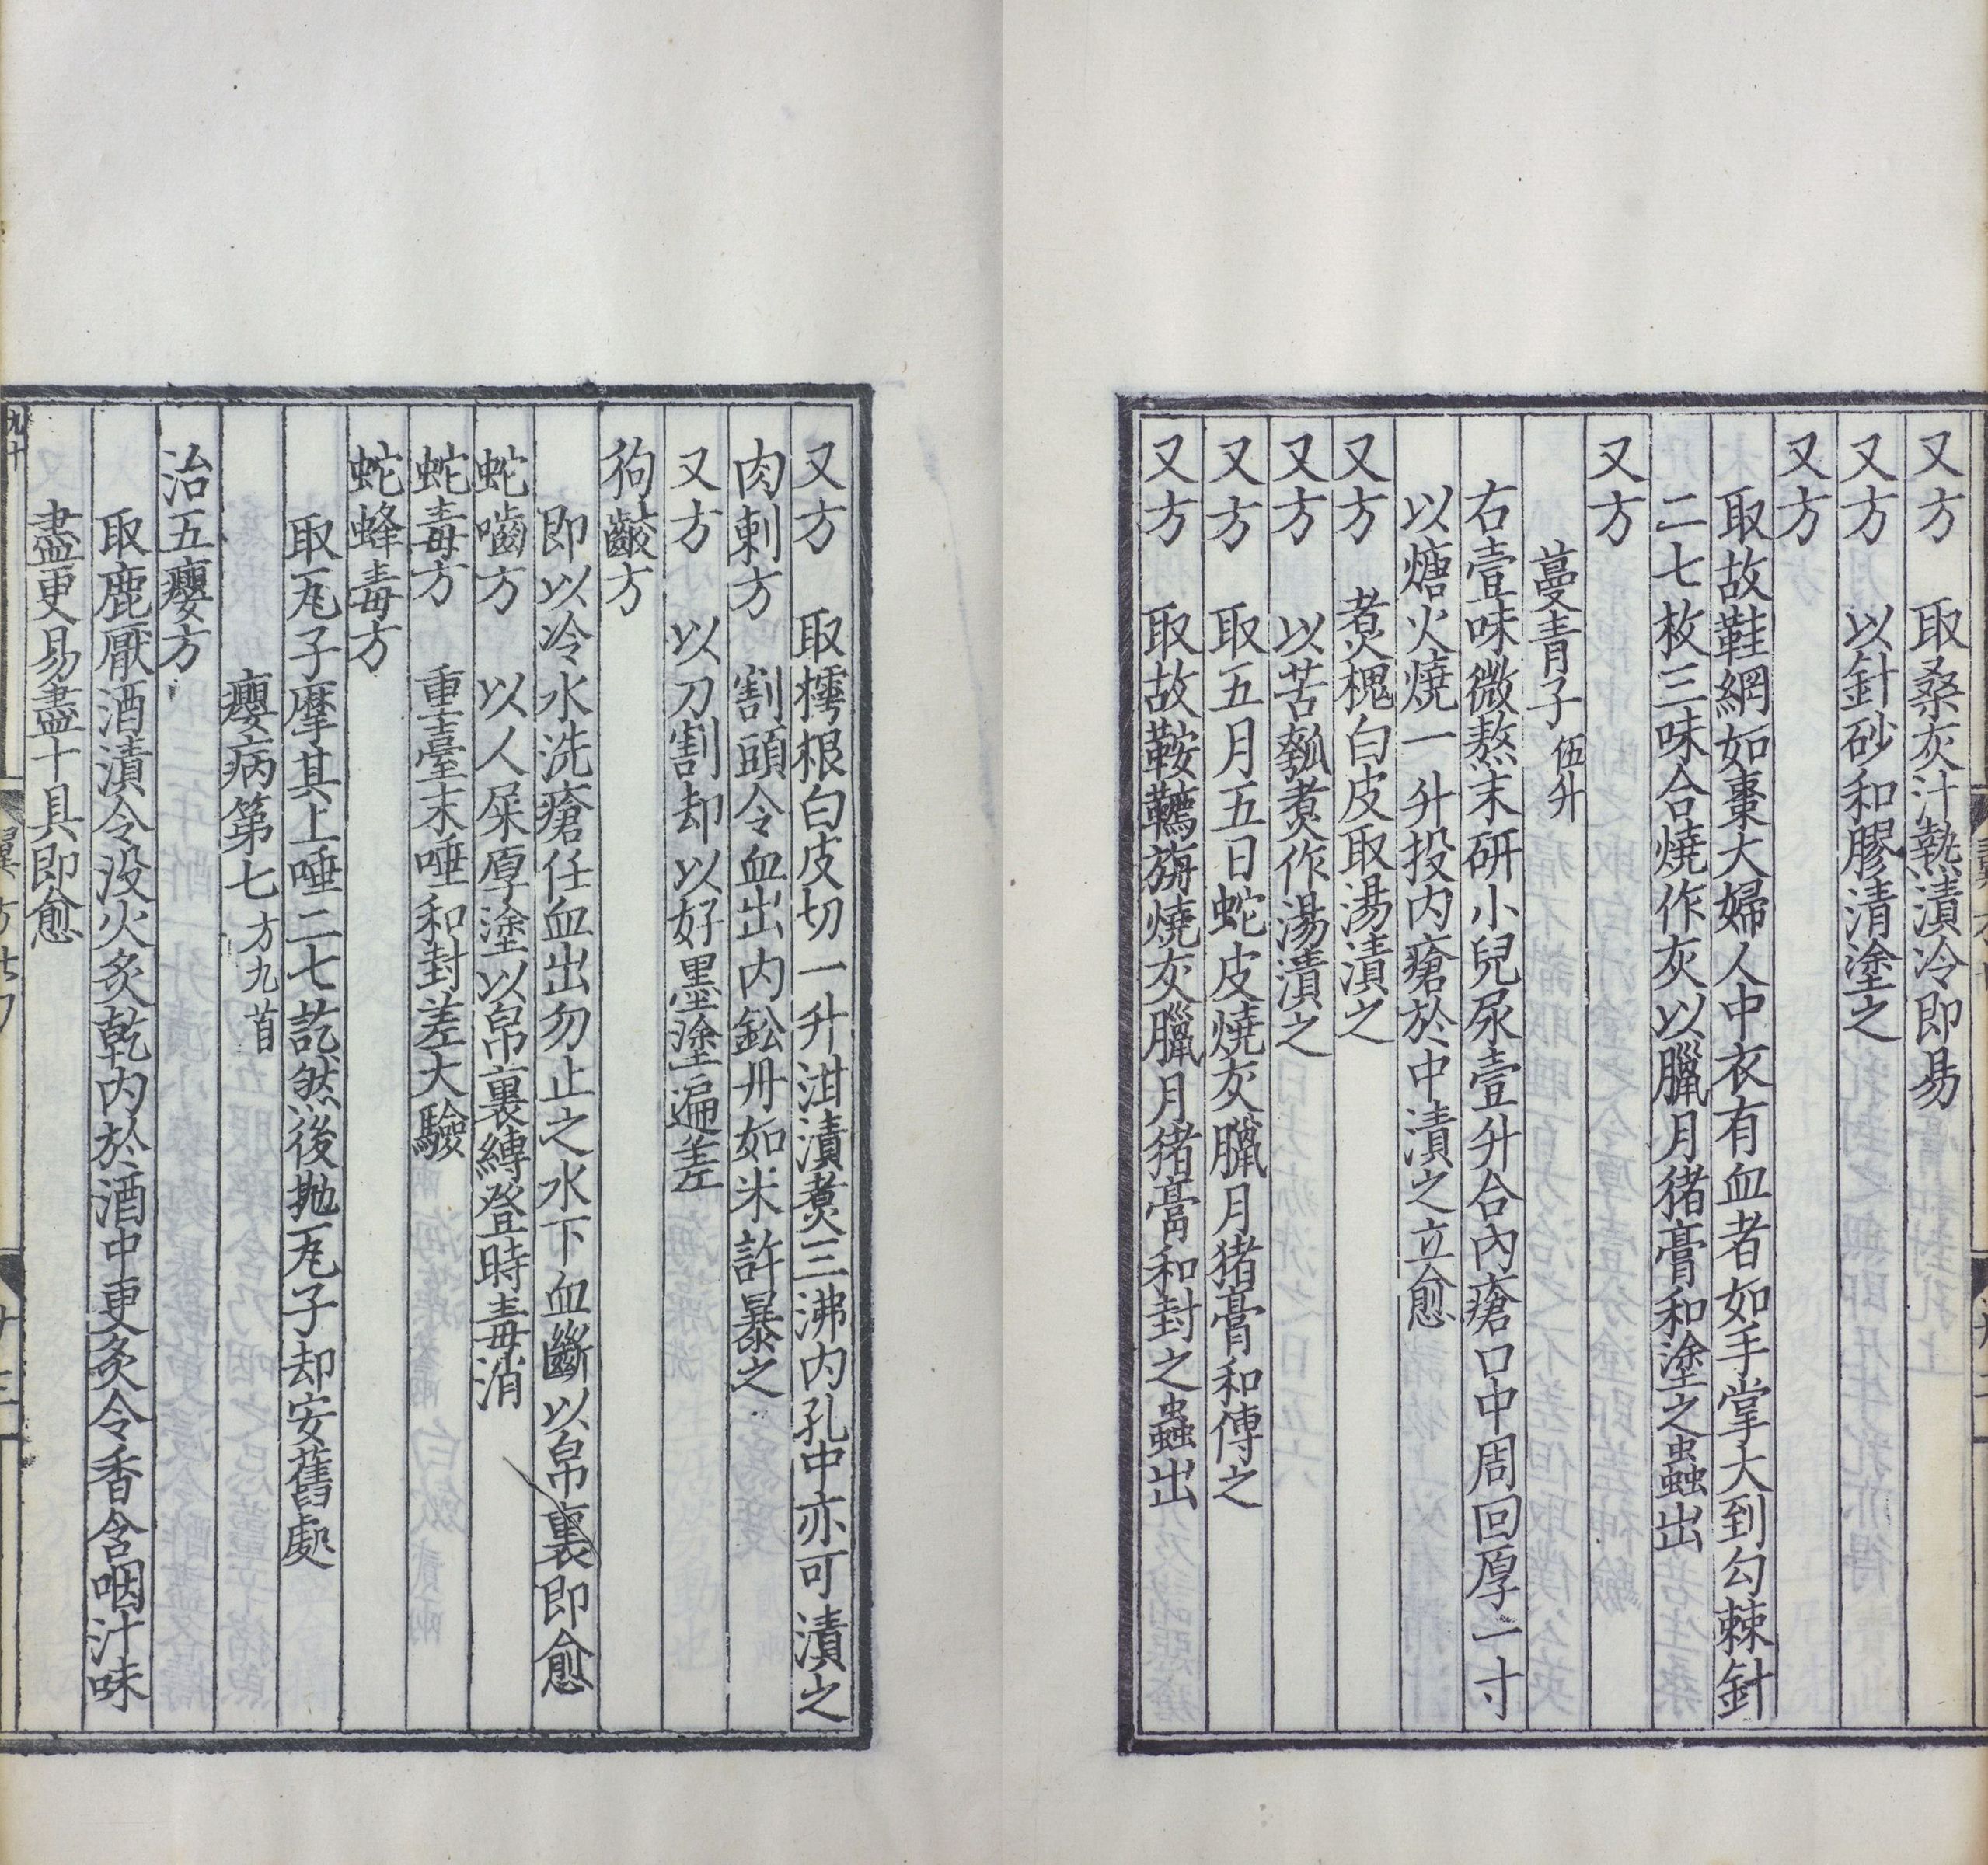 又方　取桑灰汁熱漬冷即易
又方　以針砂和膠清塗之
又方
取故鞋網如棗大婦人中衣有血者如手掌大到勾棘針
二七枚三味合燒作灰以臘月猪膏和塗之蟲出
又方
蔓青子伍升
右壹味微熬末研小兒尿壹升合內瘡口中周回厚一寸
以煻火燒一升投内瘡於中漬之立愈
又方　煑槐白皮取湯漬之
又方　以苦瓠煑作湯漬之
又方　取五月五日蛇皮燒灰臘月猪膏和傅之
又方　取故鞍韉旃燒灰臘月猪膏和封之蟲出
又方　取樗根白皮切一升泔漬煑三沸内孔中亦可漬之
肉刺方　割頭令血出内鈆丹如米許暴之
又方　以刀割却以好墨塗遍差
狗齩方
即以冷水洗瘡任血出勿止之水下血斷以帛裹即愈
蛇嚙方　以人屎厚塗以帛裹縛登時毒消
蛇毒方　重臺末唾和封差大驗
蛇蜂毒方
取瓦子摩其上唾二七訖然後抛瓦子却安舊處
癭病第七方九首
治五癭方
取鹿厭酒漬令没火炙乾内於酒中更炙令香含咽汁味
盡更易盡十具即愈